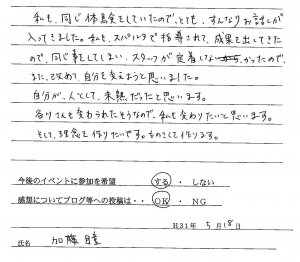 私も、同じ体験をしていたので、とても、すんなりお話しが
入ってきました。私も、スパルタで指導されて、成果を出してきた
ので、同じ事をしてしまい、スタッフが定着しなかったので、
また、改めて、自分を変えようと思いました。
自分が、人として、未熟だったと思います。
谷川さんも変わられたそうなので、私も変わりたいと思います。
そして、理念を作りたいです。ものさしを作ります。
今後のイベントに参加を希望 する ・ しない
感想についてブログ等への投稿は・・ OK ・ NG
H31年 5月18日
氏名 加藤